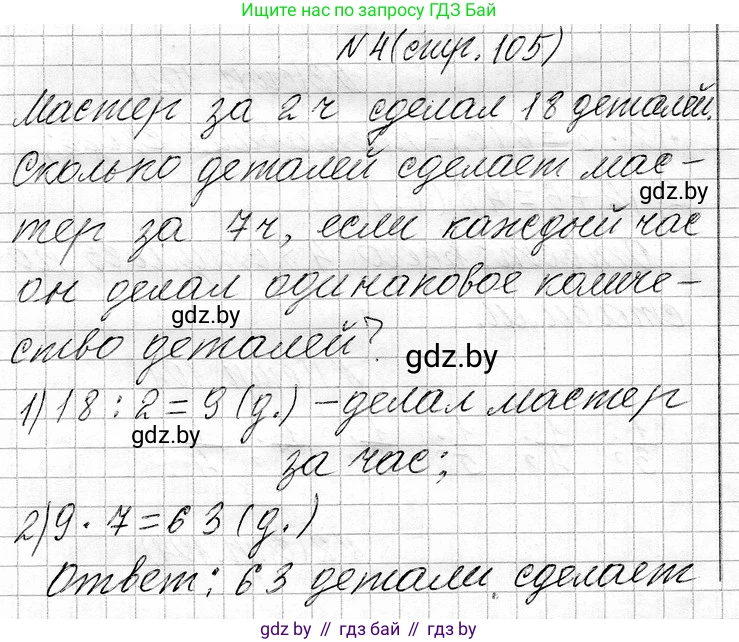 Ищите нас по запросу ГДЗ Бай
№4(стр. 105)
Мастер за 2 ч сделал 18 деталей.
Сколько деталей сделает мас-
gdz.by
тер за 7ч, если каждый час
он делал одинаковое количе-
gdz.by
ство деталей?
gdz.by
1) 18 : 2 = 9 (д.) – делал мастер
gdz.by
за час;
2) 9 · 7 = 63 (д.)
Ответ: 63 детали сделает
gdz.by // гдз бай // gdz.by